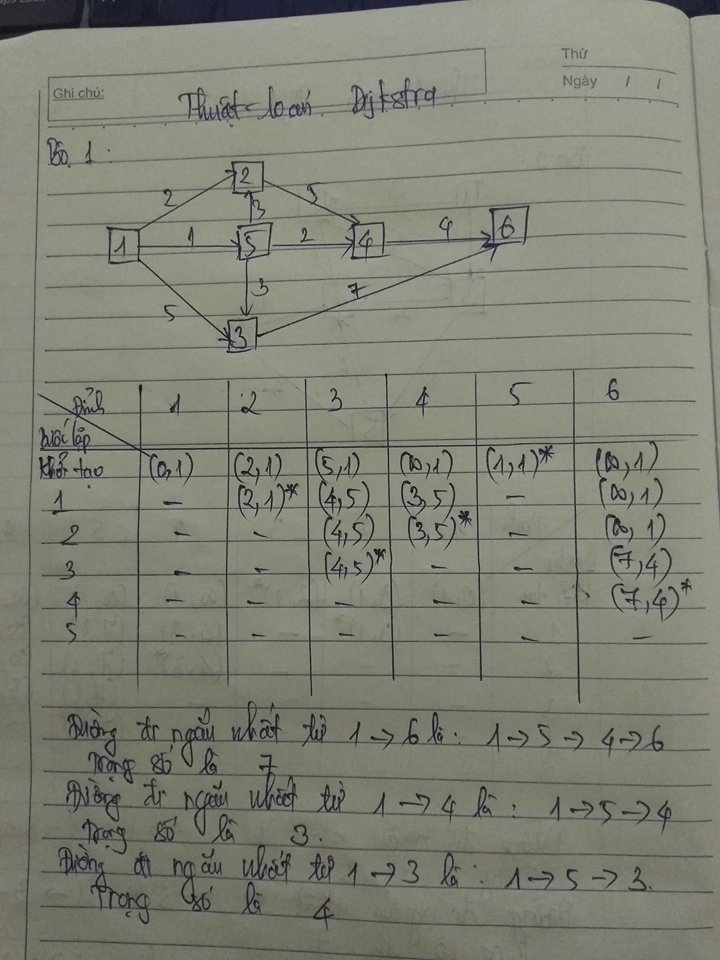 Thứ
Ghi chú:
Ngày / /
Thuật toán Dijkstra
Bài 1:
2
2 5
3
1 1 5 2 4 4 6
5 3 7
3
Đỉnh 1 2 3 4 5 6
Bước lặp
Khởi tạo (0,1) (2,1) (5,1) (∞,1) (1,1)* (∞,1)
1 - (2,1)* (4,5) (3,5) - (∞,1)
2 - - (4,5) (3,5)* - (∞,1)
3 - - (4,5)* - - (7,4)
4 - - - - - (7,4)*
5 - - - - - -
Đường đi ngắn nhất từ 1 → 6 là: 1 → 5 → 4 → 6
Trọng số là 7
Đường đi ngắn nhất từ 1 → 4 là: 1 → 5 → 4
Trọng số là 3.
Đường đi ngắn nhất từ 1 → 3 là: 1 → 5 → 3.
Trọng số là 4